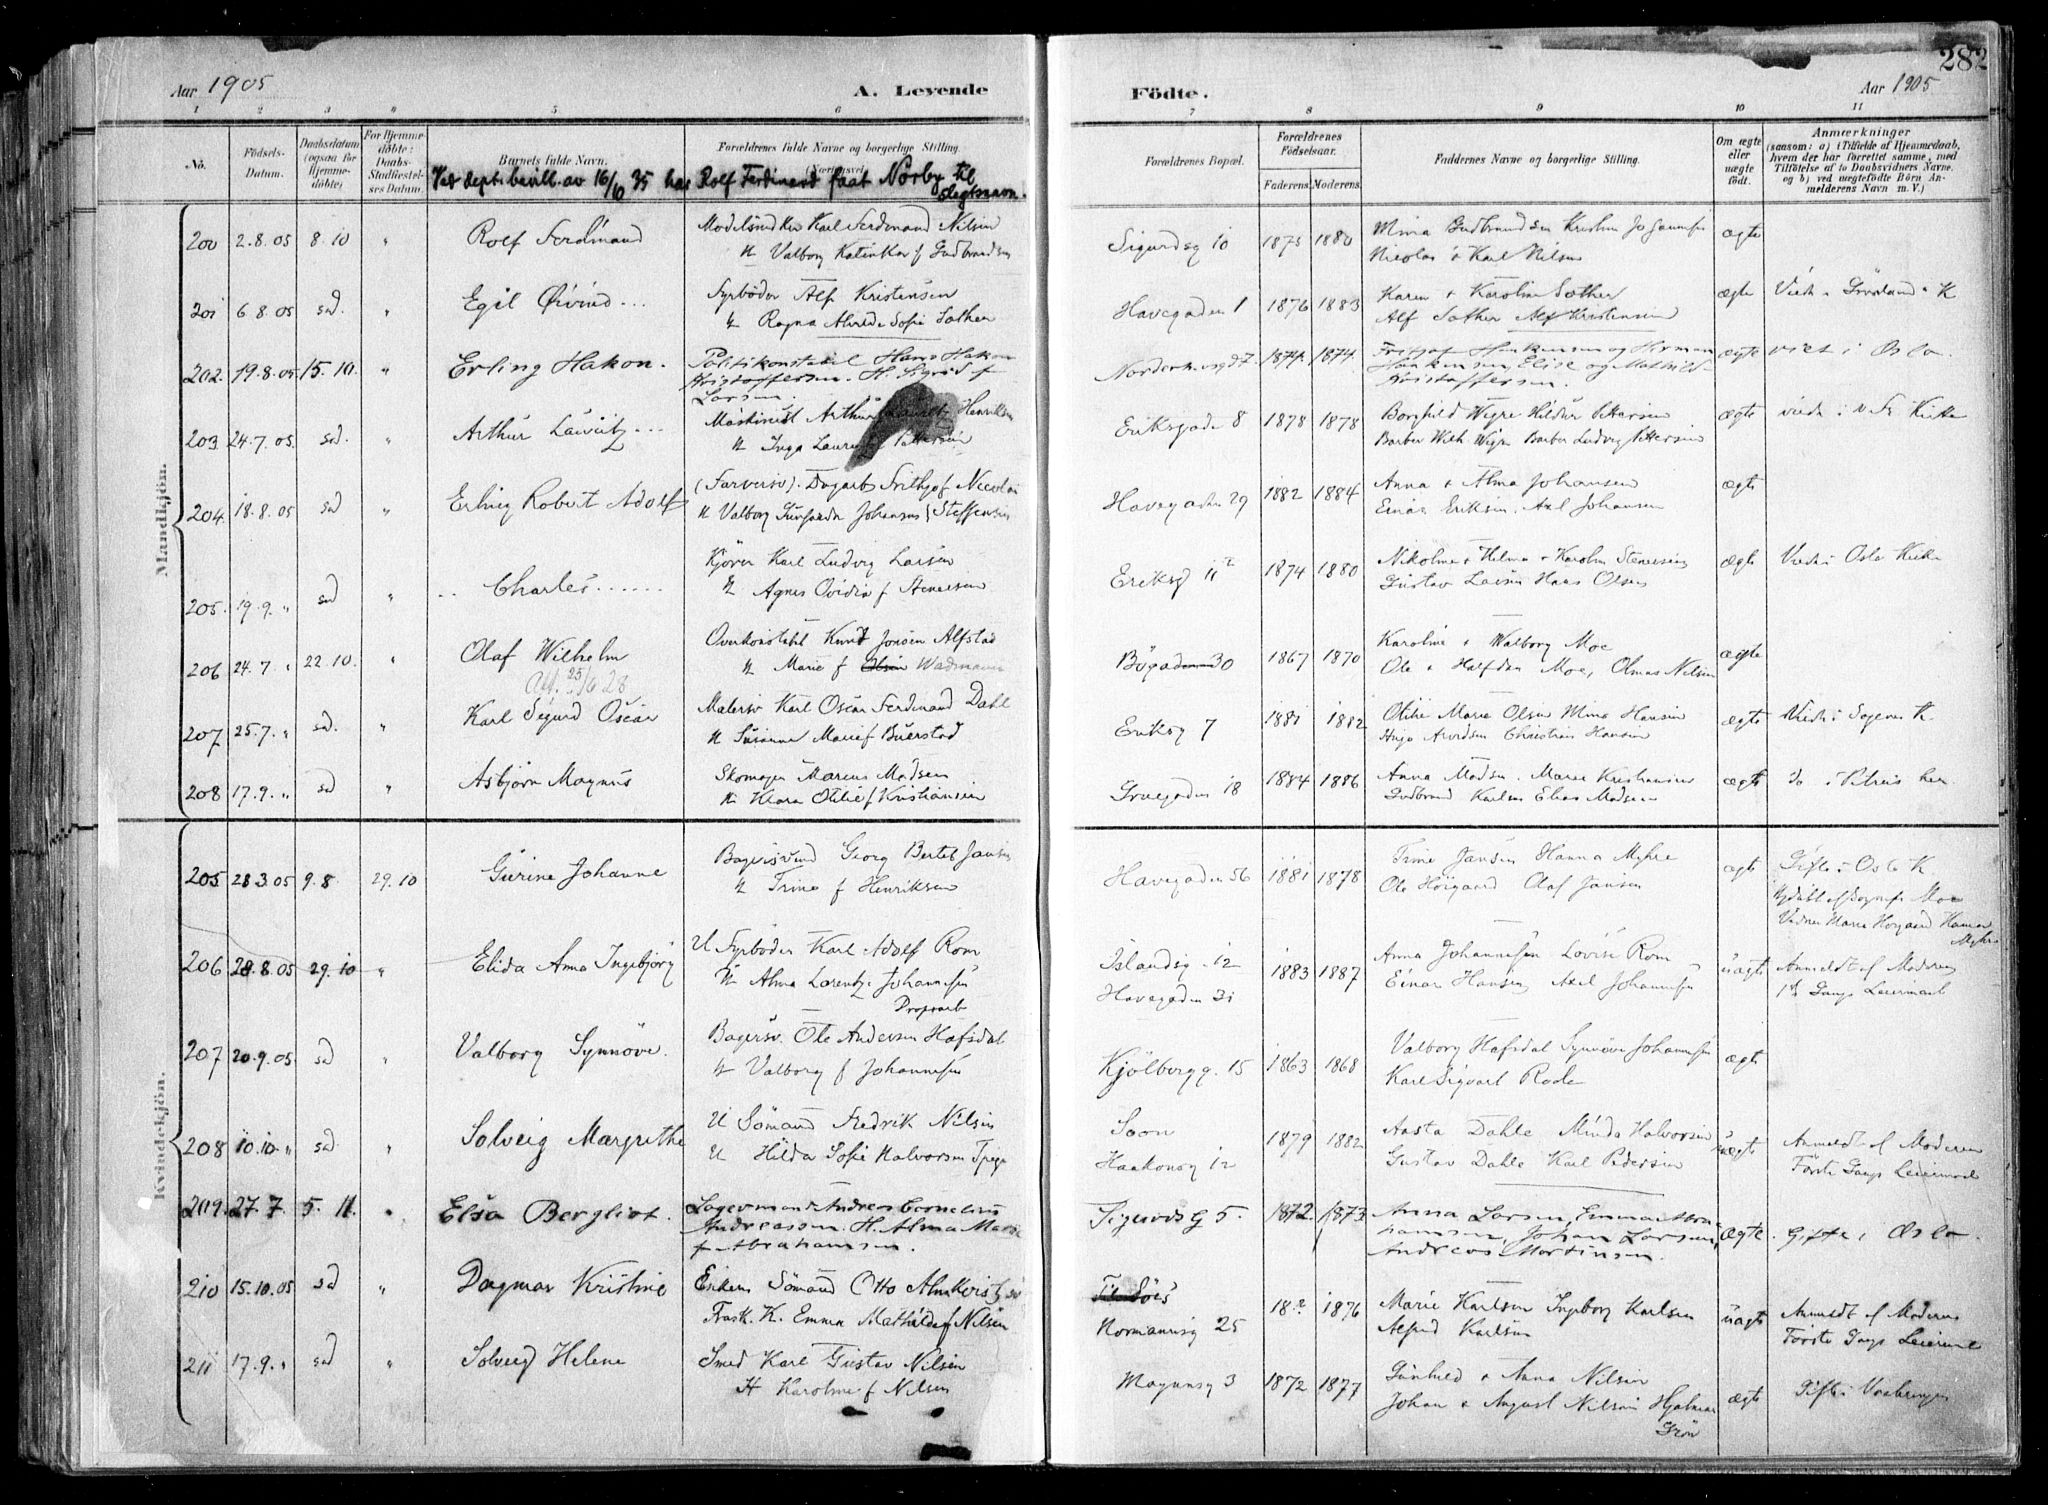 Aar 1905 A. Levende
Födte. Aar 1905
282
1 2 3 4 5 6
7 8 9 10 11
No. Födsels-Datum. Daabsdatum (ogsaa for Hjemmedöbte) For Hjemmedöbte: Daabs-Stadfæstelses Datum. Barnets fulde Navn. Forældrenes fulde Navne og borgerlige Stilling.
Forældrenes Bopæl. Forældrenes Födselsaar. Faderens. Moderens. Faddernes Navne og borgerlige Stilling. Om ægte eller uægte födt. Anmærkninger
(saasom: a) i Tilfælde af Hjemmedaab, hvem der har forrettet samme, med Tilföielse af to Daabsvidners Navne, og b) ved uægtefödte Börn Anmelderens Navn m. V.)
Ved dept. bevill. av 16/6 35 har Rolf Ferdinand faat Nörby til
slegtsnavn.
Mandkjön.
200 2.8.05 8.10 " Rolf Ferdinand Karl Ferdinand Nilsen
H Valborg Katinka f Gudbrandsen
Sigurdsg 10 1875 1880 Mina Gudbrandsen Kristin Johannesen ægte
Nicolai & Karl Nilsen
201 6.8.05 sd. " Egil Öivind Fyrböder Alf Kristensen
H Ragna Sofie Sother
Havegaden 1 1876 1883 Karen & Karoline Sother ægte
Alf Sother Alf Kristensen
202. 19.8.05 15.10. " Erling Hakon. Politikonstabel Hans Hakon
Kristoffersen. H. Sigrid f
Larsen.
7. 1874. 1874. ægte viet i Oslo.
Elise og
Kristoffersen.
203 24.7.05. sd. " Arthur Lauritz Maskinist Arthur Henriksen
H Inga
Eriksgaden 8 1878 1878 ægte
204. 18.8.05 sd " Erling Robert Adolf (Farversv). Dagarb Frithjof Nicolai
H Valborg Johansen f Steffensen
Havegaden 29 1882 1884 Anna & Alma Johansen ægte
Einar Eriksen. Axel Johansen
205. 19.9. " sd " Charles Kjörer Karl Ludvig Larsen
H Agnes f
Eriksg 11 1874 1880 ægte Oslo Kirke
Gustav Larsen Hans Olsen
206 24.7. " 22.10. " Olaf Wilhelm Overkonstabel Knut Jonsen Alfstad
Att. 25/6 28 H Marie f Olsen
30 1867 1870 Karoline & Walborg Moe ægte
Ole & Halfdan Moe, Nilsen
207 25.7. " sd. " Karl Sigurd Oscar Malersv Karl Oscar Ferdinand Dahl
H Susanna Marie f Buerstad
Eriksg 7 1881 1882 Otilie Marie Olsen Mina Hansen ægte
Hugo Arvidsen Christian Hansen
208 17.9. " sd " Asbjörn Magnus Skomager Marcus Madsen
H Klara Otilie f Kristiansen
Gruegaden 18 1884 1886 Anna Madsen. Marie Kristiansen ægte do i Petrus
Gudbrand Karlsen Elias Madsen
Kvindekjön.
205 28.3.05 9.8 29.10 Gurine Johanne Georg Bertel Jansen
H Trine f Henriksen
Havegaden 56 1881 1878 Trine Jansen Hanna Myhre ægt Gifte i Oslo K
Ole Höigaard Olaf Jansen
Moe
Marie Hoygaard Hanna
Myhre
206 28.8.05 29.10 " Elida Anna Ingebjörg U Fyrböder Karl Adolf Rom
U Alma Johannesen
Islandsg. 12 1883 1887 Anna Johannesen Lovise Rom uægte Anmeldt af Moderen
Havegaden 31 Einar Hansen Axel Johannesen 1ste Gangs Leiermaal
207 20.9.05. sd " Valborg Synnöve. Bagersv. Ole Andersen Hafsdal
H Valborg f Johannesen
Kjölbergg. 15 1863 1868 Valborg Hafsdal Synnöve Johannesen ægte
Karl Sigvart Rode
208 10.10. " sd. " Solveig Margrethe U Sömand Fredrik Nilsen
U Hilda Sofie Halvorsen
Soon 1879 1882 Aasta Dahle Minda Halvorsen uægte Anmeldt af Moderen
Haakonsg 12 Gustav Dahle Karl Pedersen Förste Gangs Leiermaal
209. 27.7. 5.11. " Elsa Bergliot. Lagermand Andreas Cornelius
Andreassen. H. Alma Marie
f Abrahamsen.
Sigurds G 5. 1872. 1873 Anna Larsen, Emma Abra-
hamsen, Johan Larsen, ægte. Gifte i Oslo.
Andreas Mortinsen.
210 15.10.05 sd " Dagmar Kristine Enkem Sömand Otto
Frask. K. Emma Mathilde f Nilsen
Normannsg 25 18? 1876 Marie Karlsen Ingeborg Karlsen uægte Anmeldt af Moderen
Alfred Karlsen Förste Gangs Leiermaal
211 17.9. " sd " Solveig Helene Smed Karl Gustav Nilsen
H Karoline f Nilsen
Magnusg 3 1872 1877 Gunhild & Anna Nilsen
Johan & August Nilsen Hjalmar ægte Gifte i Vaalerengen
Grön